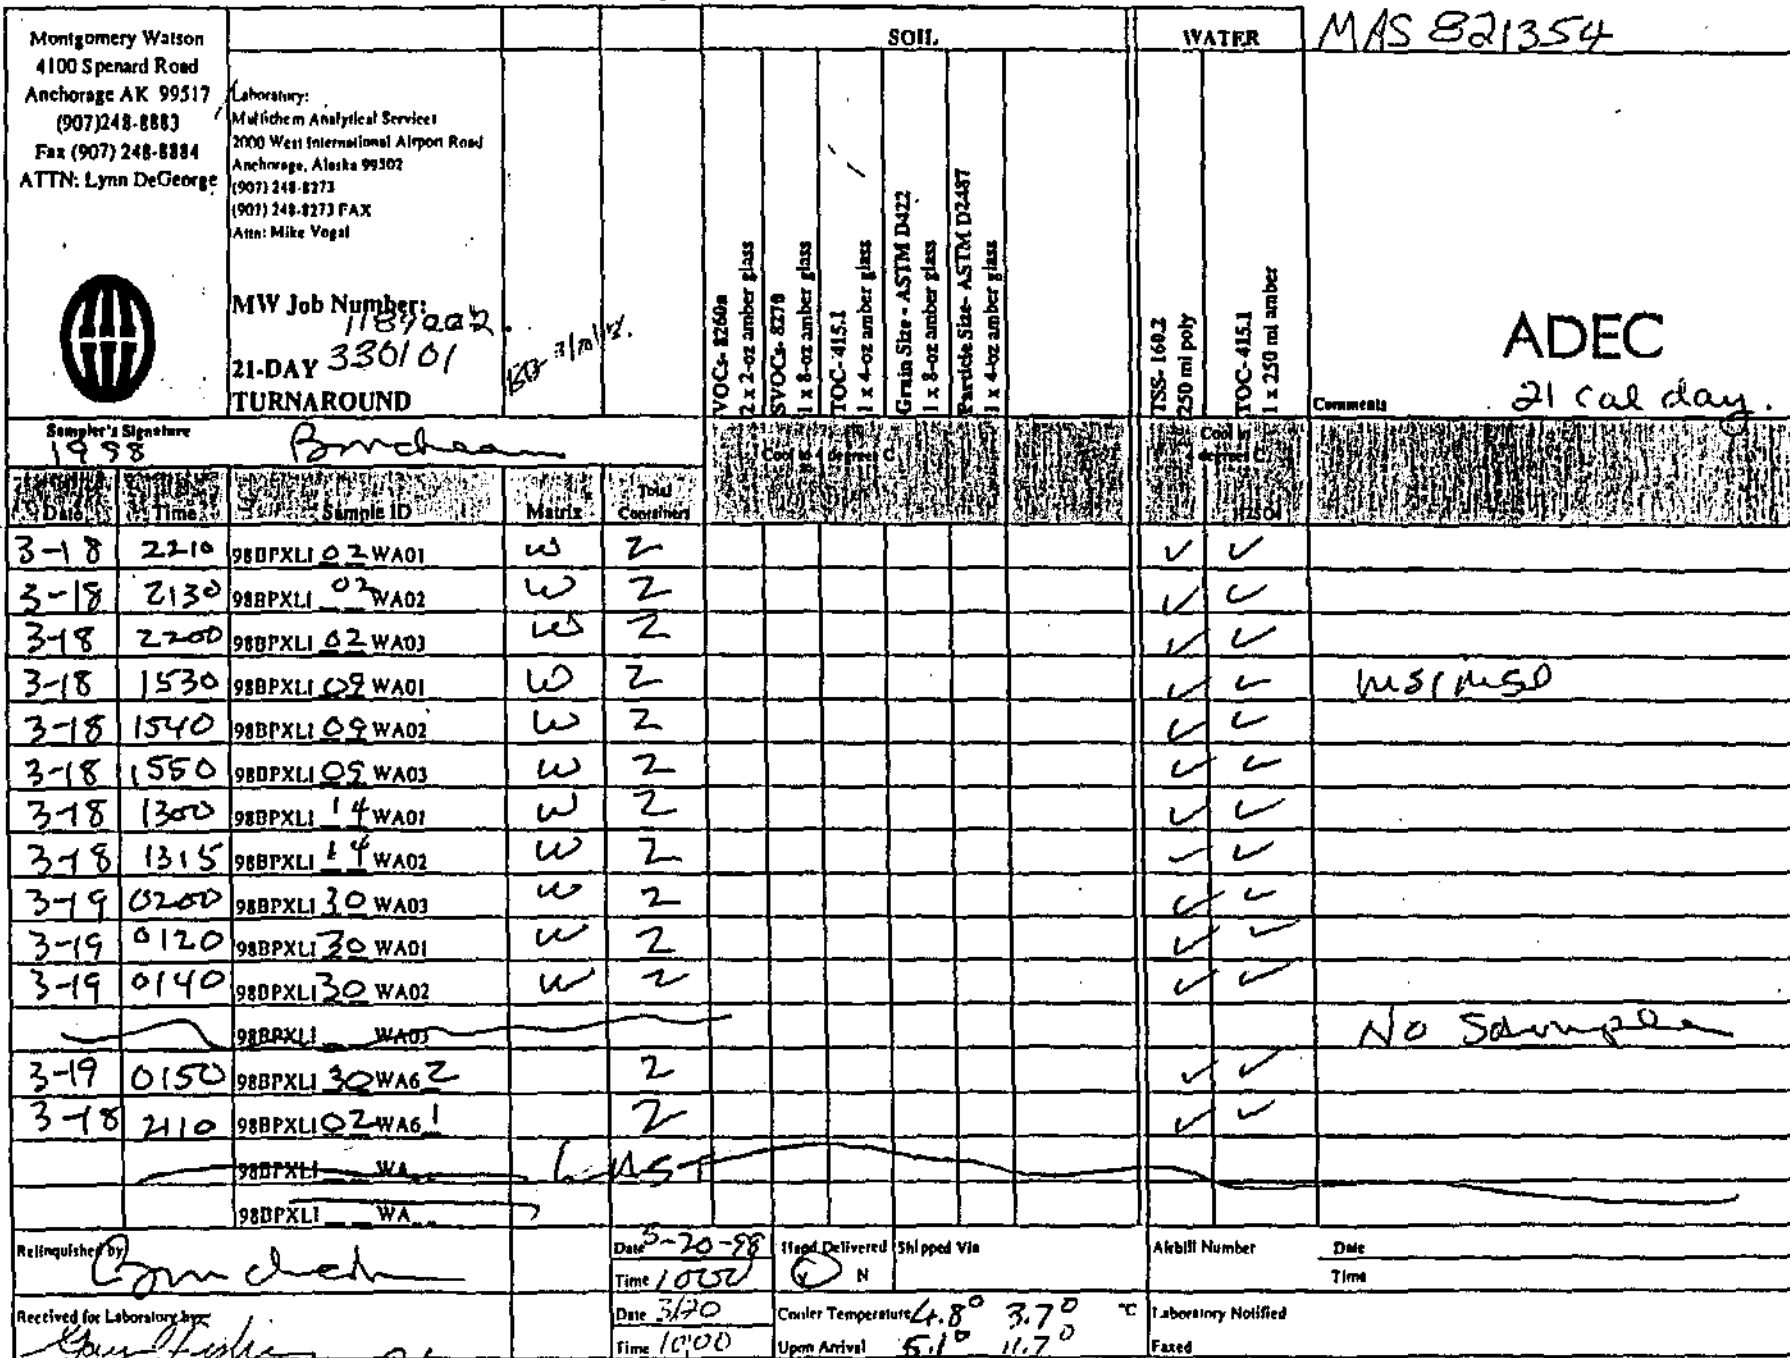 MAS 821354
Montgomery Watson
4100 Spenard Road
Anchorage AK 99517
(907)248-8883
Fax (907) 248-8884
ATTN: Lynn DeGeorge
Laboratory:
Multichem Analytical Services
2000 West International Airport Road
Anchorage, Alaska 99502
(907) 248-8273
(907) 248-8273 FAX
Attn: Mike Vogal
MW Job Number:
330101
21-DAY
TURNAROUND
SOIL
WATER
VOCs- 8260a
2 x 2-oz amber glass
SVOCs- 8270
1 x 8-oz amber glass
TOC- 415.1
1 x 4-oz amber glass
Grain Size - ASTM D422
1 x 8-oz amber glass
Particle Size- ASTM D2487
1 x 4-oz amber glass
TSS- 160.2
250 ml poly
TOC-415.1
1 x 250 ml amber
Comments
ADEC
21 Cal day.
Sampler's Signature
1998
Cool to 4 degrees C
Cool to
4 degrees C
H2SO4
Date Time Sample ID Matrix Total Containers
3-18 2210 98BPXLI 02 WA01 W 2 ✓ ✓
3-18 2130 98BPXLI 02 WA02 W 2 ✓ ✓
3-18 2200 98BPXLI 02 WA03 W 2 ✓ ✓
3-18 1530 98BPXLI 09 WA01 W 2 ✓ ✓ MS/MSD
3-18 1540 98BPXLI 09 WA02 W 2 ✓ ✓
3-18 1550 98BPXLI 09 WA03 W 2 ✓ ✓
3-18 1300 98BPXLI 14 WA01 W 2 ✓ ✓
3-18 1315 98BPXLI 14 WA02 W 2 ✓ ✓
3-19 0200 98BPXLI 30 WA03 W 2 ✓ ✓
3-19 0120 98BPXLI 30 WA01 W 2 ✓ ✓
3-19 0140 98BPXLI 30 WA02 W 2 ✓ ✓
98BPXLI __ WA03 No Sample
3-19 0150 98BPXLI 30 WA6 2 2 ✓ ✓
3-18 2110 98BPXLI 02 WA6 1 2 ✓ ✓
98BPXLI __ WA__
98BPXLI __ WA__
Relinquished by
Date 3-20-98
Time 1000
Hand Delivered
Y N
Shipped Via
Airbill Number
Date
Time
Received for Laboratory by:
Date 3/20
Time 10:00
Cooler Temperature 4.8° 3.7° °C
Upon Arrival 5.1° 11.7°
Laboratory Notified
Faxed